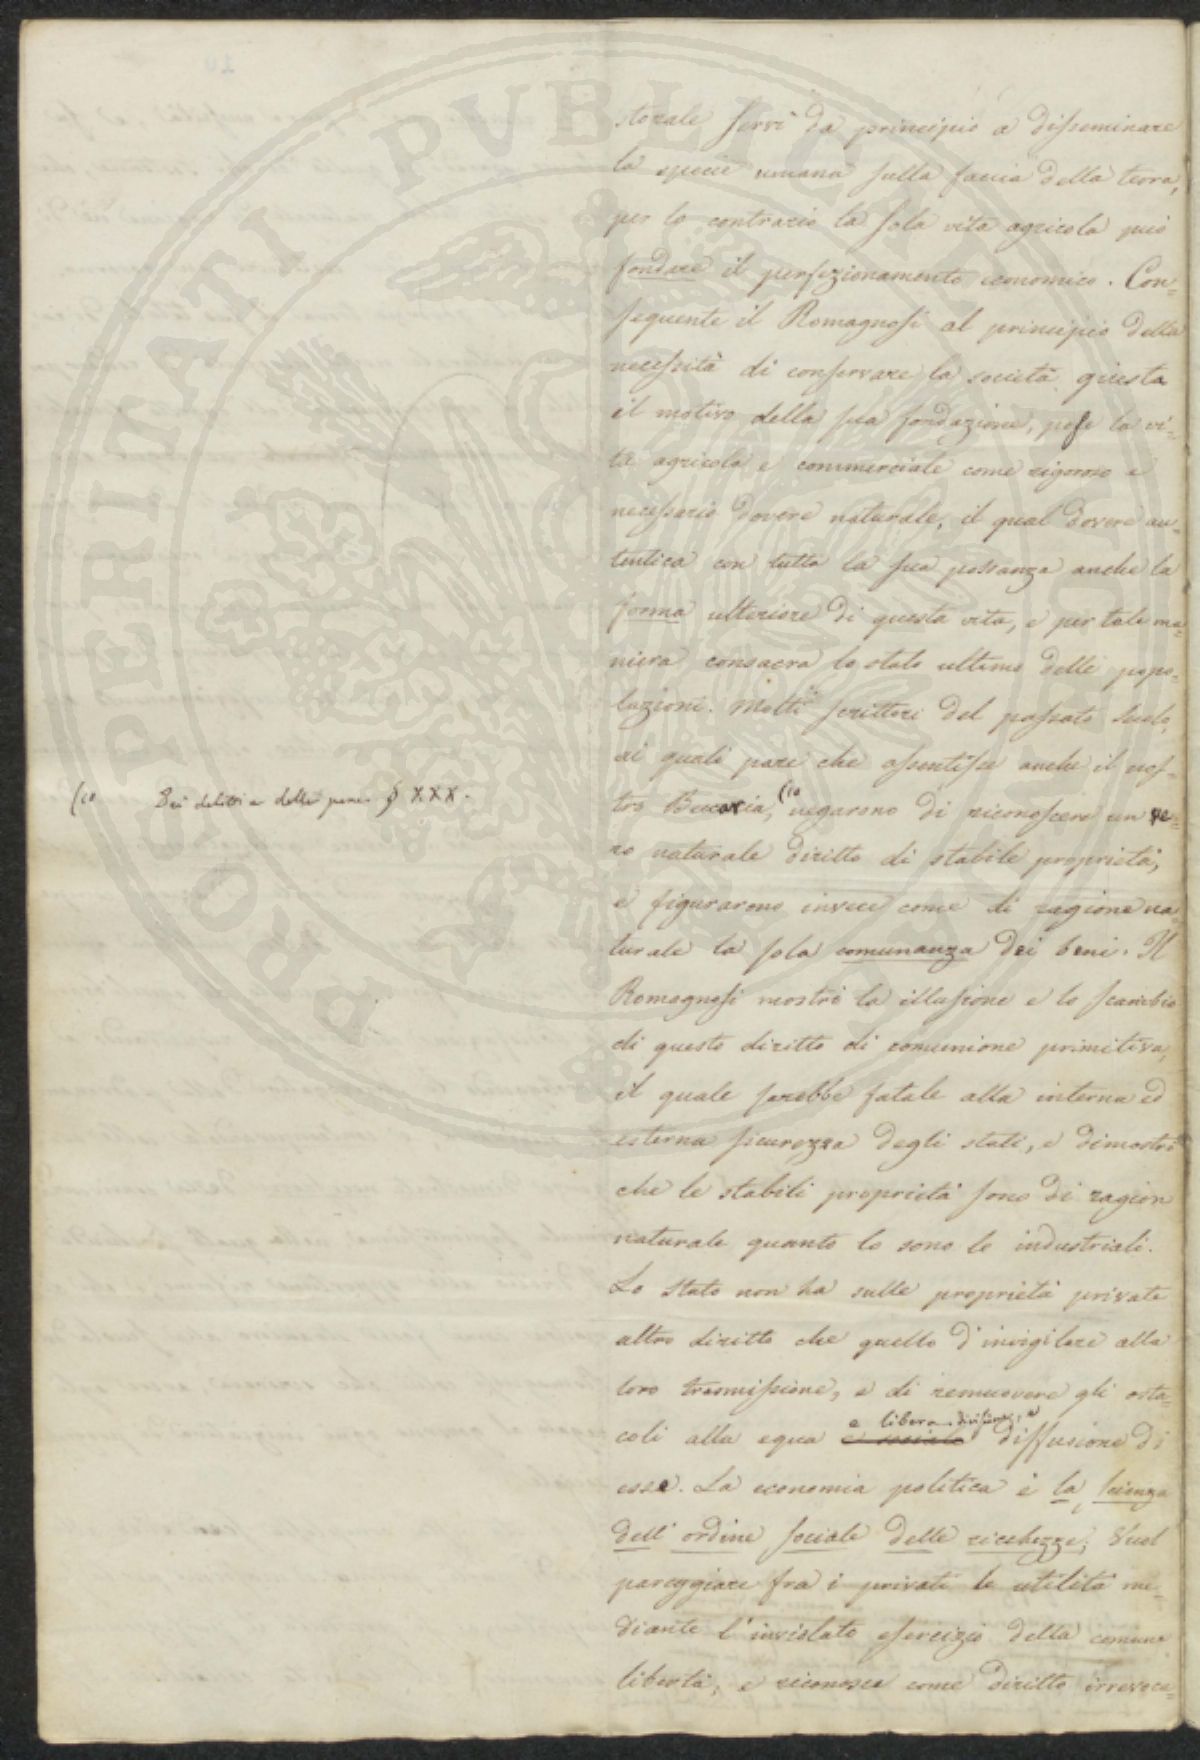 storale servì da principio a disseminare
la specie umana sulla faccia della terra,
per lo contrario la sola vita agricola può
fondare il perfezionamento economico. Con-
seguente il Romagnosi al principio della
necessità di conservare la società, questa
il motivo della sua fondazione, pose la vi-
ta agricola e commerciale come rigoroso e
necessario dovere naturale, il qual dovere au-
tentica con tutta la sua possanza anche la
forma ulteriore di questa vita, e per tale ma-
niera consacra lo stato ultimo delle popo-
lazioni. Molti scrittori del passato secolo,
ai quali pare che assentisse anche il nos-
tro Beccaria, (10 negarono di riconoscere un ve-
ro naturale diritto di stabile proprietà,
e figurarono invece come di ragione na-
turale la sola comunanza dei beni. Il
Romagnosi mostrò la illusione e lo scambio
di questo diritto di comunione primitiva,
il quale sarebbe fatale alla interna ed
esterna sicurezza degli stati, e dimostrò
che le stabili proprietà sono di ragion
naturale quanto lo sono le industriali.
Lo Stato non ha sulle proprietà private
altro diritto che quello d'invigilare alla
loro trasmissione, e di removere gli osta-
e libera divisione, e
coli alla equa e sociale diffusione di
esse. La economia politica è la scienza
dell'ordine sociale delle ricchezze, Vuol
pareggiare fra i privati le utilità me-
diante l'inviolato esercizio della comune
libertà, e riconosce come diritto irrevoca-
(10 Dei delitti e delle pene § XXX.
PROSPERITATI PVBLICAE